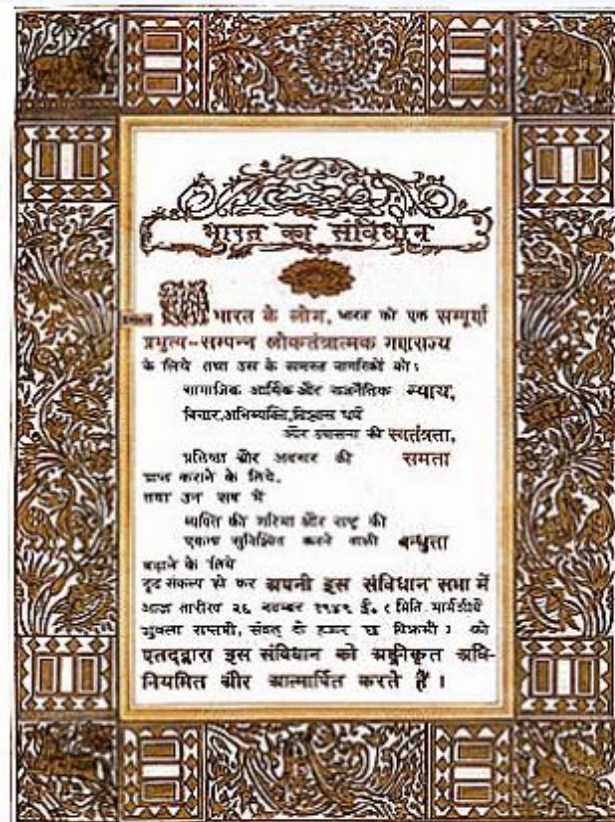 भारत का संविधान
हम भारत के लोग, भारत को एक सम्पूर्ण
प्रभुत्व-सम्पन्न लोकतंत्रात्मक गणराज्य
के लिये तथा उस के समस्त नागरिकों को:
सामाजिक आर्थिक और राजनैतिक न्याय,
विचार,अभिव्यक्ति,विश्वास धर्म
और उपासना की स्वतंत्रता,
प्रतिष्ठा और अवसर की समता
प्राप्त कराने के लिये,
तथा उन सब में
व्यक्ति की गरिमा और राष्ट्र की
एकता सुनिश्चित करने वाली बन्धुता
बढ़ाने के लिये
दृढ़ संकल्प हो कर अपनी इस संविधान सभा में
आज तारीख २६ नवम्बर १९४९ ई॰ (मिति मार्गशीर्ष
शुक्ला सप्तमी, संवत् दो हजार छ विक्रमी) को
एतद्द्वारा इस संविधान को अङ्गीकृत अधि-
नियमित और आत्मार्पित करते हैं।